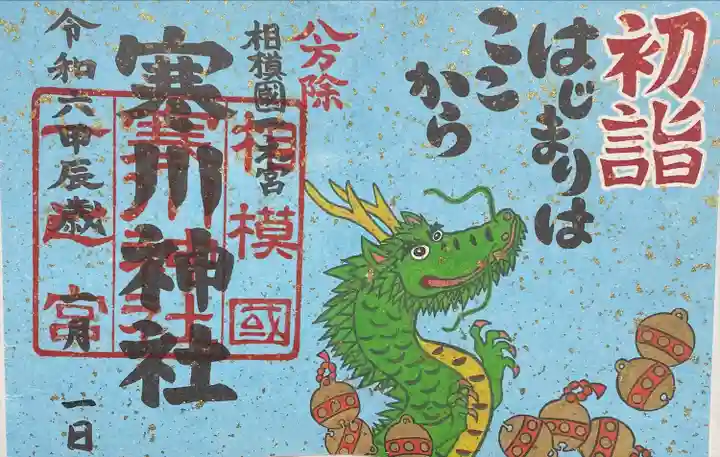 初詣
はじまりは
ここ
から
八方除
相模國一之宮
寒川神社
相模國
令和六甲辰歳 一月 一日